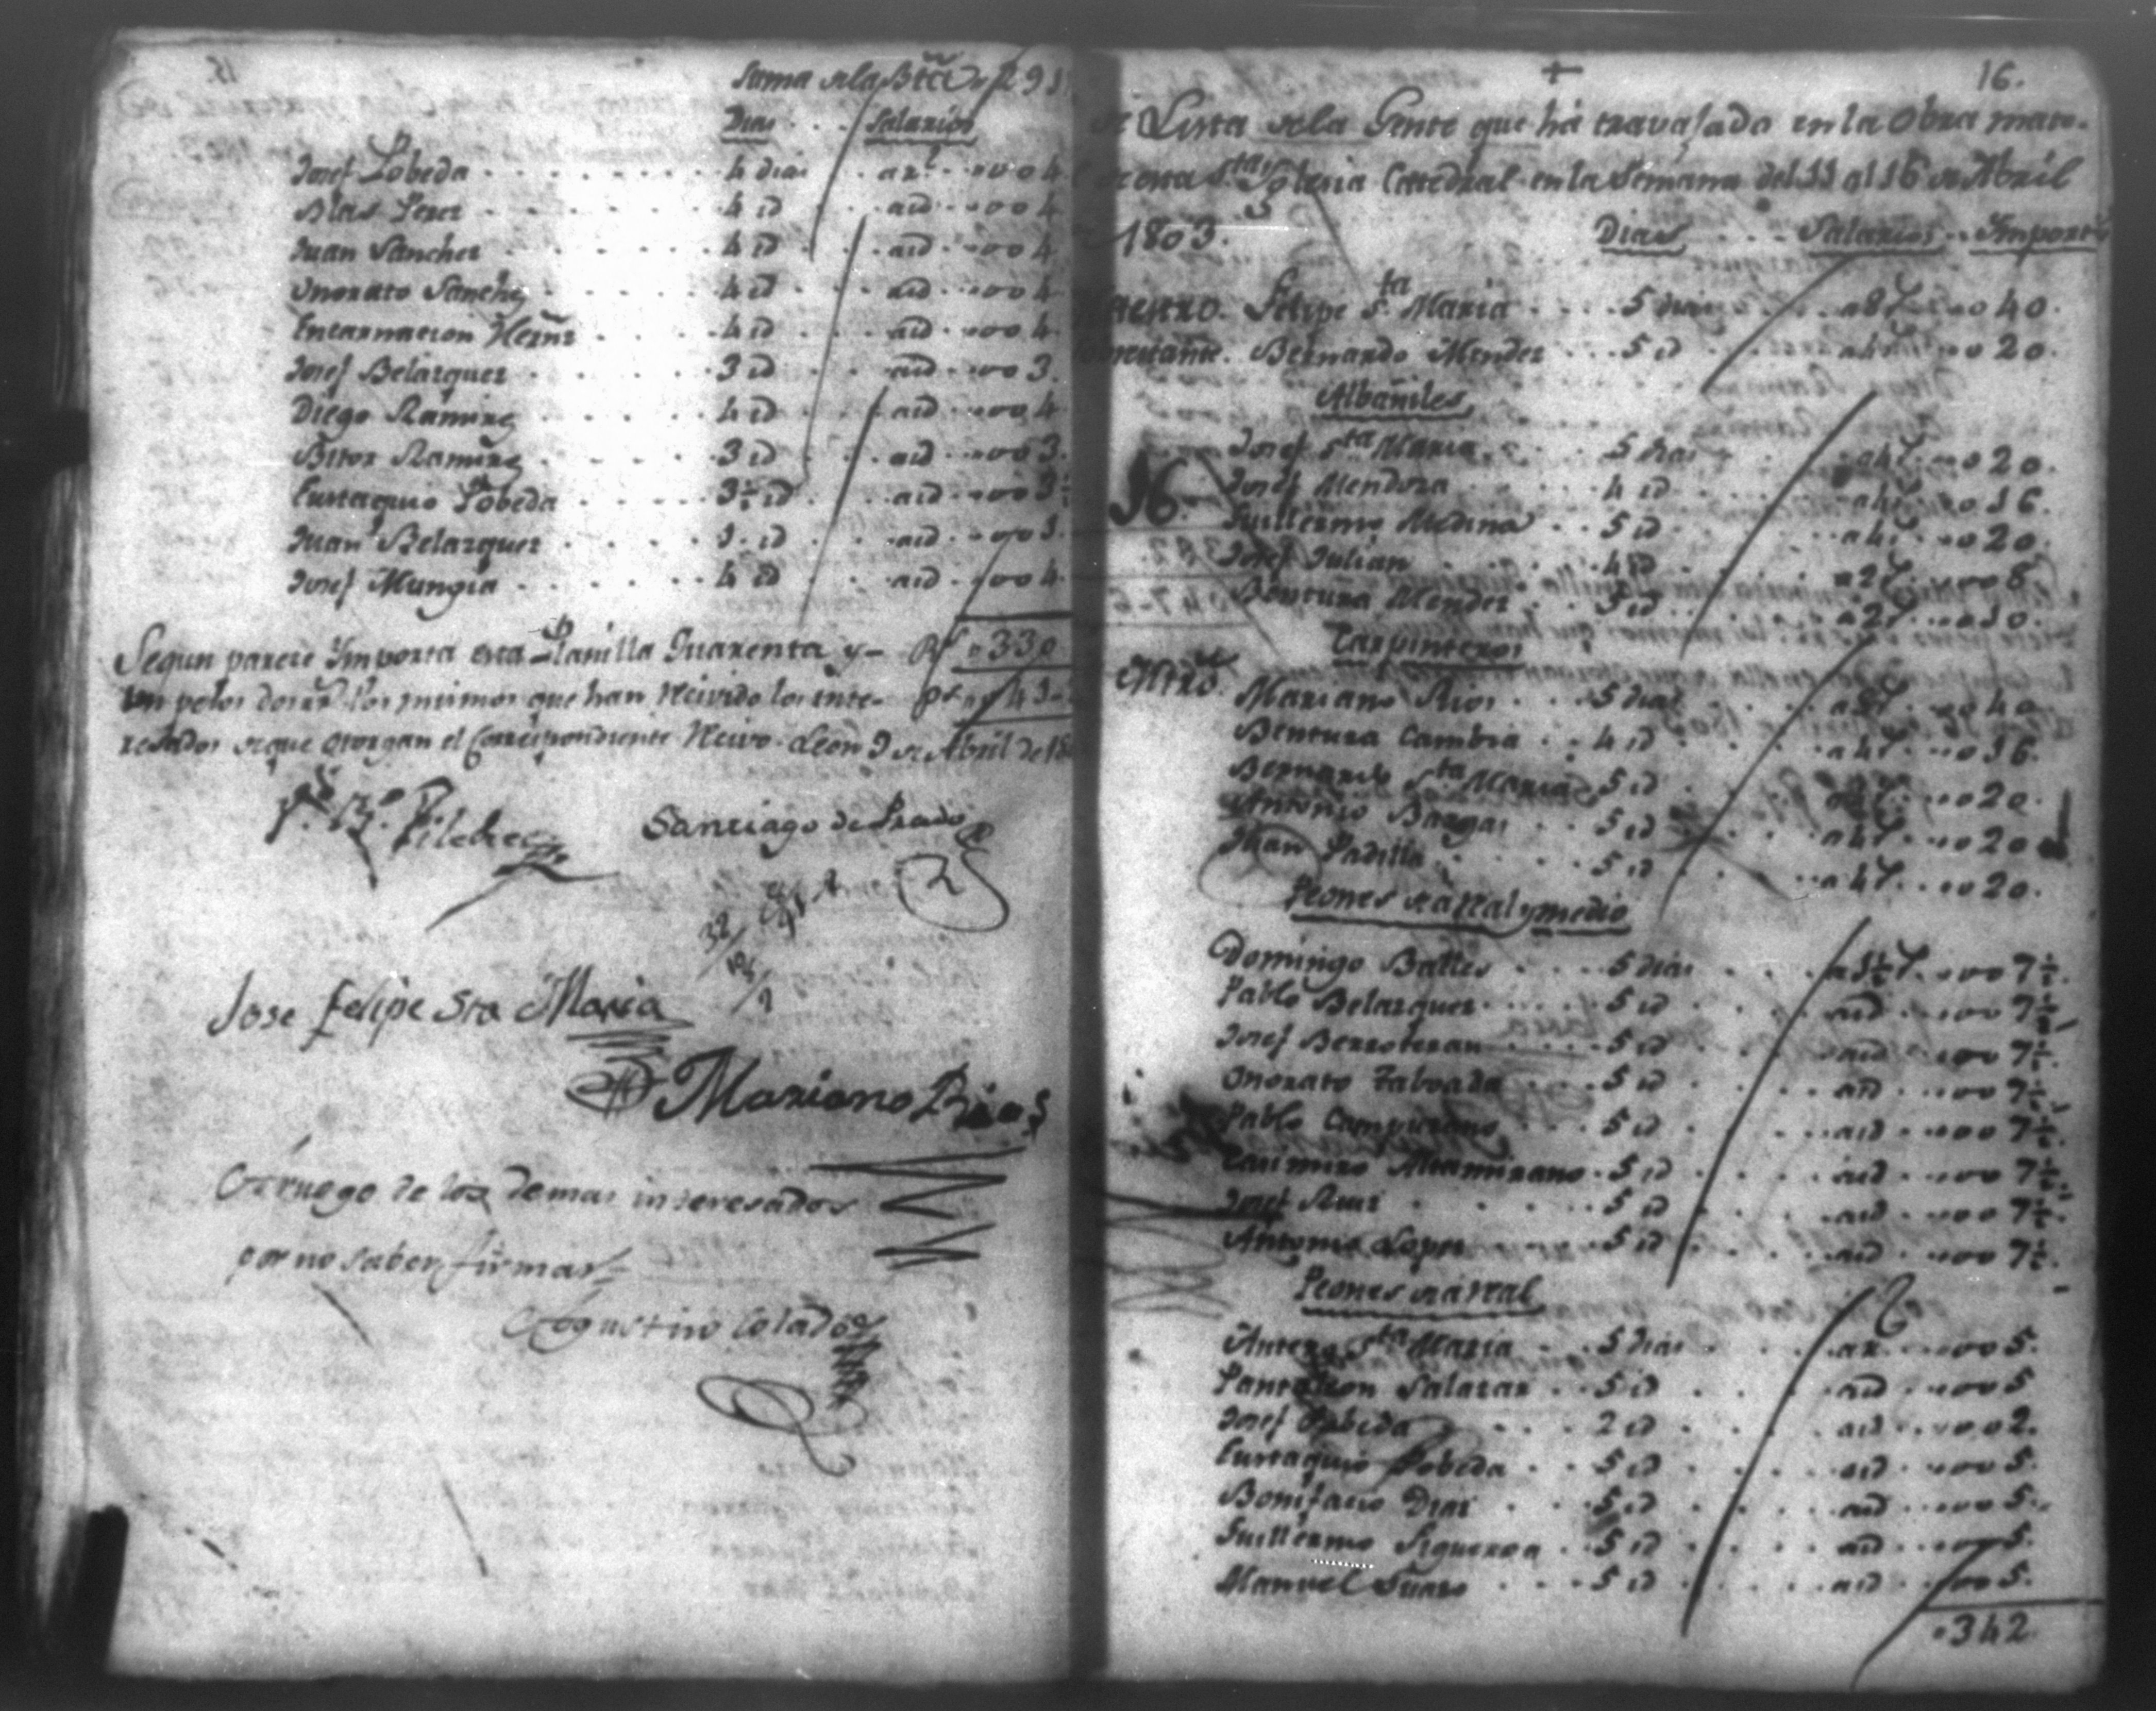 Suma de la Bta " 291
Dias . . . Salarios
Josef Pobeda . . . . . . . 4 dias . . a 1 rl . . " 0 0 4
Blas Perez . . . . . . . 4 id . . a id . . " 0 0 4
Juan Sanchez . . . . . . 4 id . . a id . . " 0 0 4
Onorato Sanchz . . . . 4 id . . a id . . " 0 0 4
Encarnacion Hernz . . . 4 id . . a id . . " 0 0 4
Josef Belazquez . . . . . 3 id . . a id . . " 0 0 3
Diego Ramirz . . . . . 4 id . . a id . . " 0 0 4
Bitor Ramirz . . . . . 3 id . . a id . . " 0 0 3
Eustaquio Pobeda . . . . 3½ id . . a id . . " 0 0 3½
Juan Belazquez . . . . . 1 . id . . a id . . " 0 0 1
Josef Mungia . . . . . 4 id . . a id . . " 0 0 4
Segun parece Ymporta esta Planilla Quarenta y- Rs " 330
un pesos dos rrs los mismos que han Recivido los inte- ps " 41-2
resados de que otorgan el Correspondiente Recivo. Leon 9 de Abril de 18
Pilchez Santiago de Prado
Jose felipe Sta Maria
Mariano Rios
A ruego de los demas interesados
por no saber firmar
Agustin Colado
16.
Lista de la Gente que há travajado en la Obra mate-
de esta Sta Yglesia Catedral en la Semana del 11 al 16 de Abril
1803. Dias . . . Salarios . . Ymporte
Maestro. Felipe Sta Maria . . . 5 dias . . a 8 r . . " 0 40.
Sobrestante. Bernardo Mendez . . . 5 id . . a 4 r . . " 0 20.
Albañiles
Josef Sta Maria . . . 5 dias . . a 4 r . . " 0 20.
16. Josef Mendoza . . . 4 id . . a 4 r . . " 0 16
Guillermo Medina . . . 5 id . . a 4 r . . " 0 20.
Josef Julian . . . 4 id . . a 2 r . . " 0 0 8
Bentura Mendez . . . 5 id . . a 2 r . . " 0 10.
Carpinteros
Mtro. Mariano Rios . . . 5 dias . . a 8 r . . " 0 40
Bentura Cambra . . . 4 id . . a 4 r . . " 0 16.
Bernardo Sta Maria . . 5 id . . a 4 r . . " 0 20
Antonio Bargas . . . 5 id . . a 4 r . . " 0 20
Juan Padilla . . . 5 id . . a 4 r . . " 0 20.
Peones de a Real y medio
Domingo Balles . . . 5 dias . . a 1½ r . . " 0 0 7½
Pablo Belazquez . . . 5 id . . a id . . " 0 0 7½
Josef Berroteran . . . 5 id . . a id . . " 0 0 7½
Onorato Taboada . . . 5 id . . a id . . " 0 0 7½
Pablo Campuzano . . . 5 id . . a id . . " 0 0 7½
Casimiro Altamirano . 5 id . . a id . . " 0 0 7½
Josef Ruiz . . . 5 id . . a id . . " 0 0 7½
Antonio Lopez . . . 5 id . . a id . . " 0 0 7½
Peones de a Real
Antero Sta Maria . . . 5 dias . . a 1 r . . " 0 0 5.
Pantaleon Salazar . . . 5 id . . a id . . " 0 0 5
Josef Pobeda . . . 2 id . . a id . . " 0 0 2.
Eustaquio Pobeda . . . 5 id . . a id . . " 0 0 5.
Bonifacio Dias . . . 5 id . . a id . . " 0 0 5.
Guillermo Figueroa . . 5 id . . a id . . " 0 0 5.
Manuel Suazo . . . 5 id . . a id . . " 0 0 5.
" 342